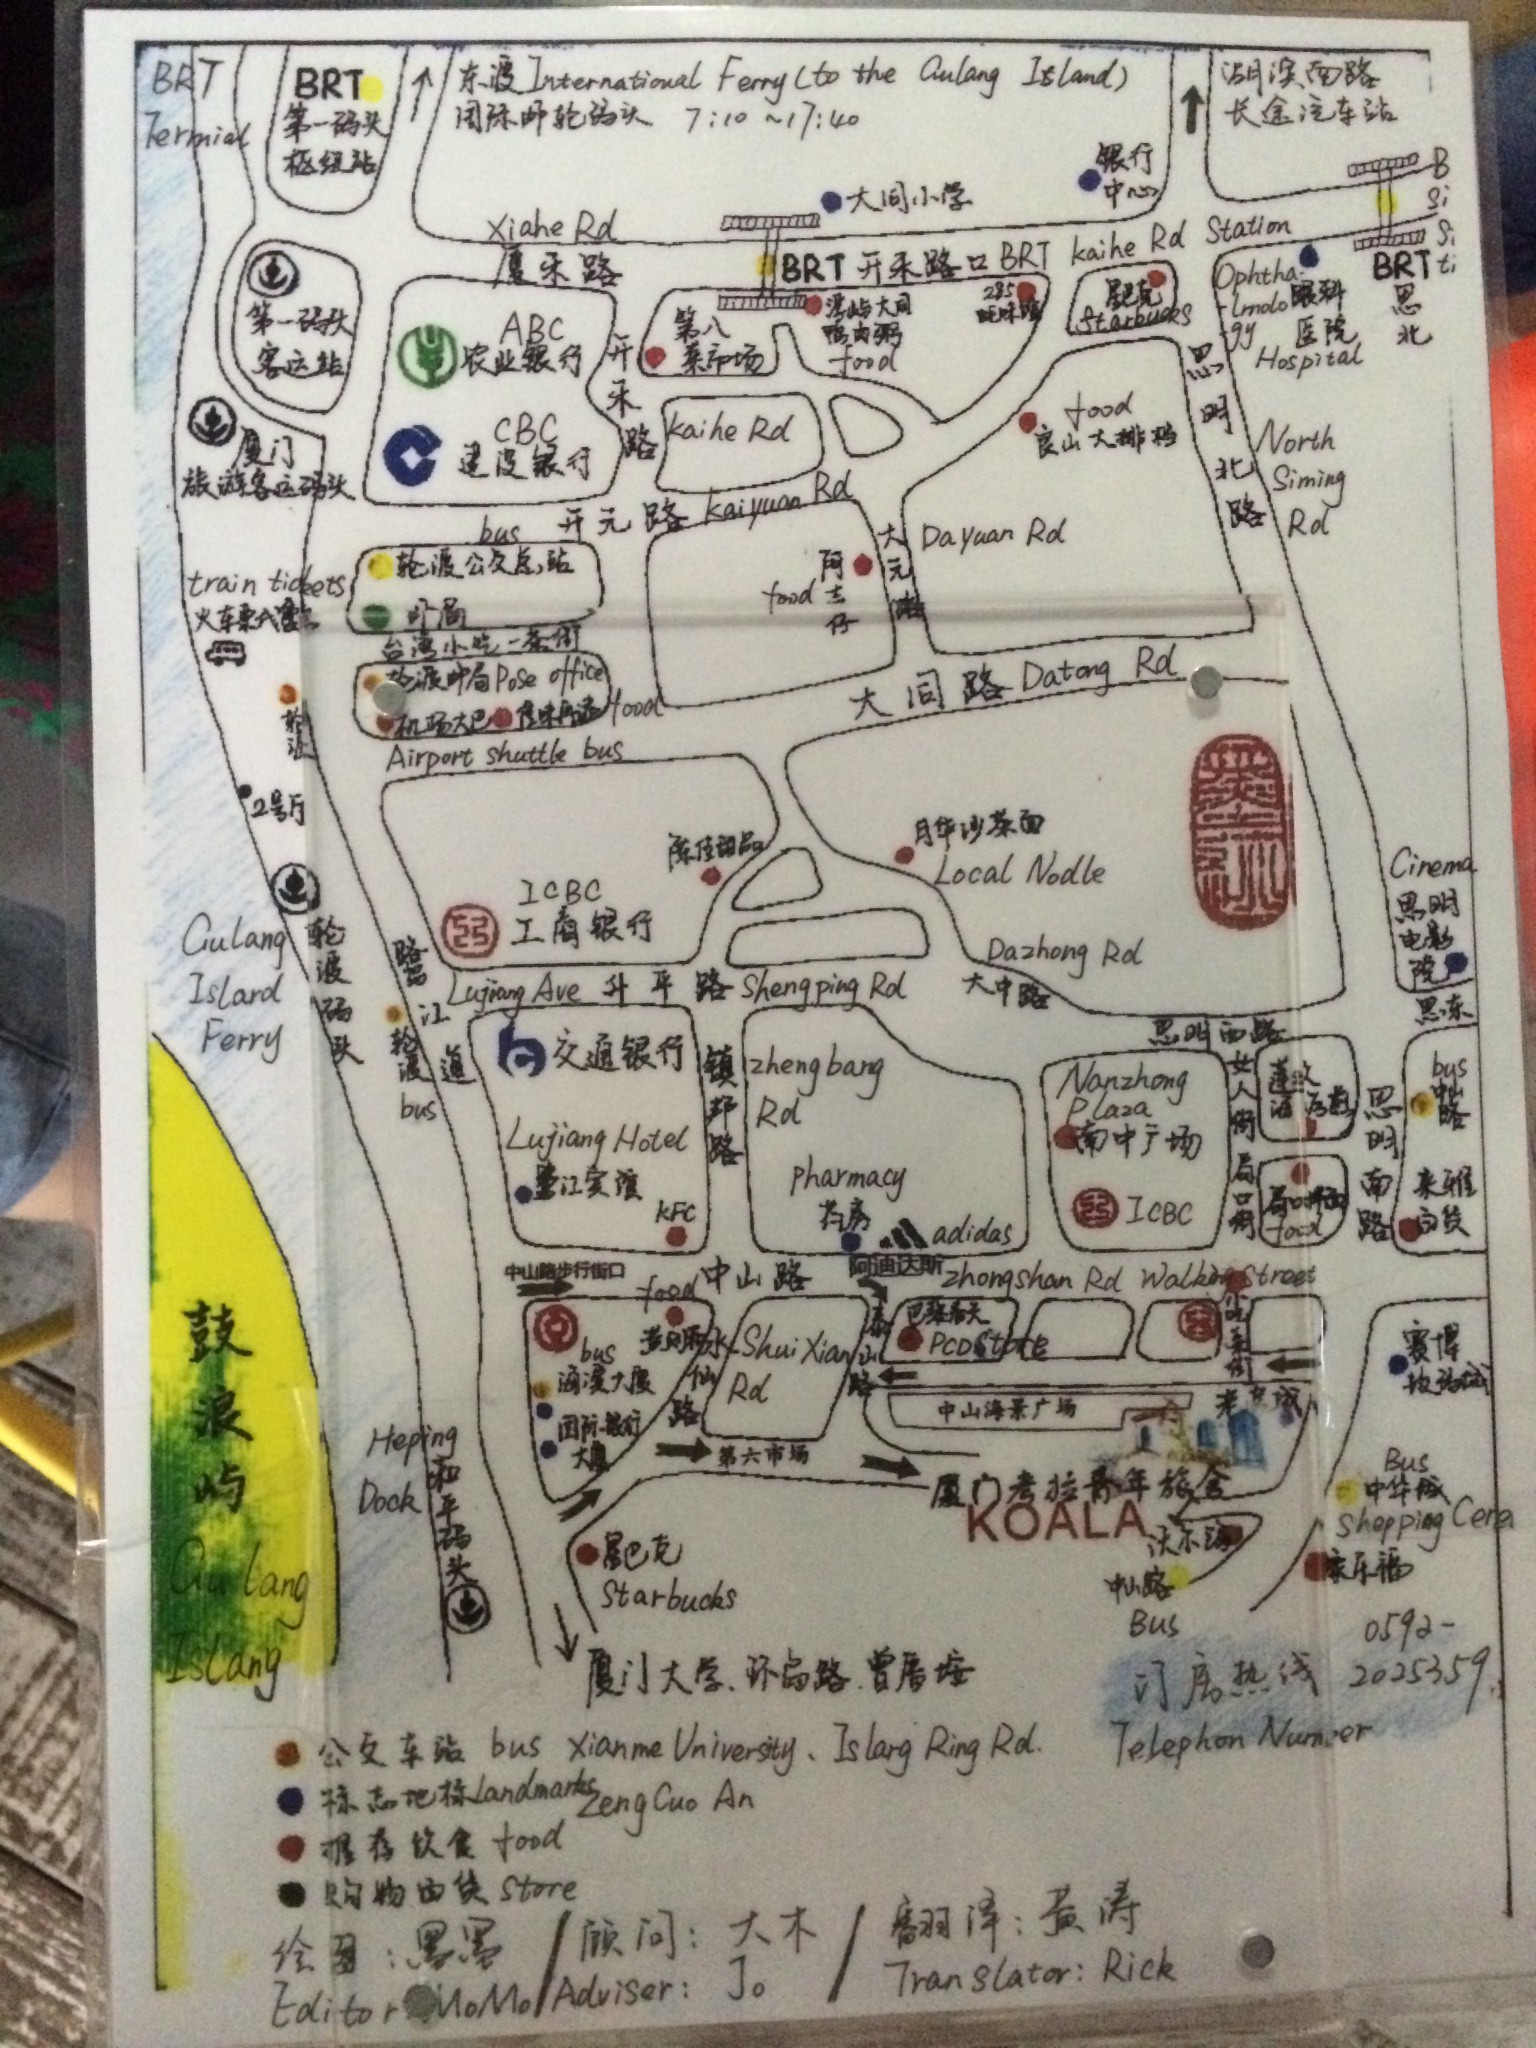 BRT
Termial
BRT
第一码头
枢纽站
东渡International Ferry(to the Gulang Island)
国际邮轮码头 7:10~17:40
湖滨南路
长途汽车站
银行
中心
大同小学
B
Si
Si
ti
Xiahe Rd
厦禾路
BRT 开禾路口 BRT kaihe Rd Station
BRT
思
北
第一码头
客运站
ABC
农业银行
开
禾
路
第八
菜市场
大同
鸭肉粥
food
星巴克
Starbucks
Ophtha
-lmolo
gy
眼科
医院
Hospital
厦门
旅游客运码头
CBC
建设银行
kaihe Rd
food
良山大排档
思
明
北
路
North
Siming
Rd
开元路 kaiyuan Rd
bus
轮渡公交总站
邮局
train tickets
台湾小吃一条街
轮渡邮局Pose office
机场大巴
food
Airport shuttle bus
food
大
元
路
Dayuan Rd
大同路 Datong Rd
轮渡
2号厅
月华沙茶面
Local Nodle
Cinema
思明
电影
院
ICBC
工商银行
Gulang
Islard
Ferry
轮
渡
码
头
Lujiang Ave 升平路 Shengping Rd
Dazhong Rd
大中路
思明西路
思东
路
江
道
轮
渡
bus
交通银行
镇
邦
路
zhengbang
Rd
Nanzhong
Plaza
南中广场
女
人
街
局
口
街
food
思
明
南
路
bus
中山
路
来雅
百货
Lujiang Hotel
鹭江宾馆
KFC
pharmacy
药房
adidas
阿迪达斯
ICBC
中山路步行街口
food
中山路
zhongshan Rd Walking Street
bus
海滨大厦
国际银行
大厦
水
仙
路
Shui Xian
Rd
巴黎春天
PCD Store
小
吃
条
街
中山海景广场
第六市场
厦门考拉青年旅舍
KOALA
沃尔玛
中山路
Bus
赛博
数码城
Bus
中华城
shopping Cere
家乐福
鼓
浪
屿
Gulang
Islang
Heping
Dock
和
平
码
头
星巴克
Starbucks
厦门大学.环岛路.曾厝垵
订房热线
0592-
2025359
Telephon Number
公交车站 bus Xianme University、Islarg Ring Rd.
标志地标Landmarks
Zeng Cuo An
推荐饮食 food
购物百货 store
绘图:墨墨 / 顾问: 大木 / 翻译: 黄涛
Editor MoMo/Adviser: Jo / Translator: Rick